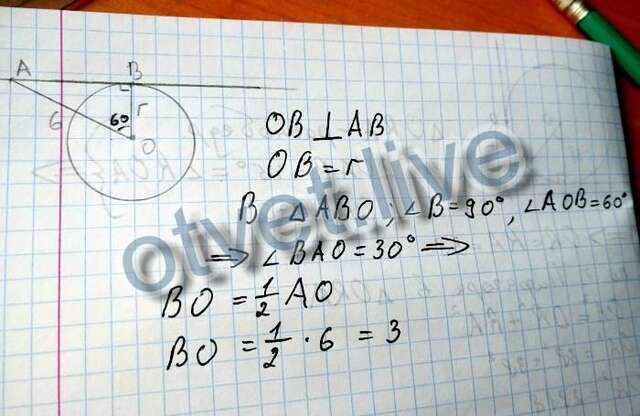 A
B
r
6
60°
O
OB ⊥ AB
OB = r
В △ABO; ∠B = 90°, ∠AOB = 60°
⇒ ∠BAO = 30° ⇒
BO = 1/2 AO
BO = 1/2 · 6 = 3
otvet.live